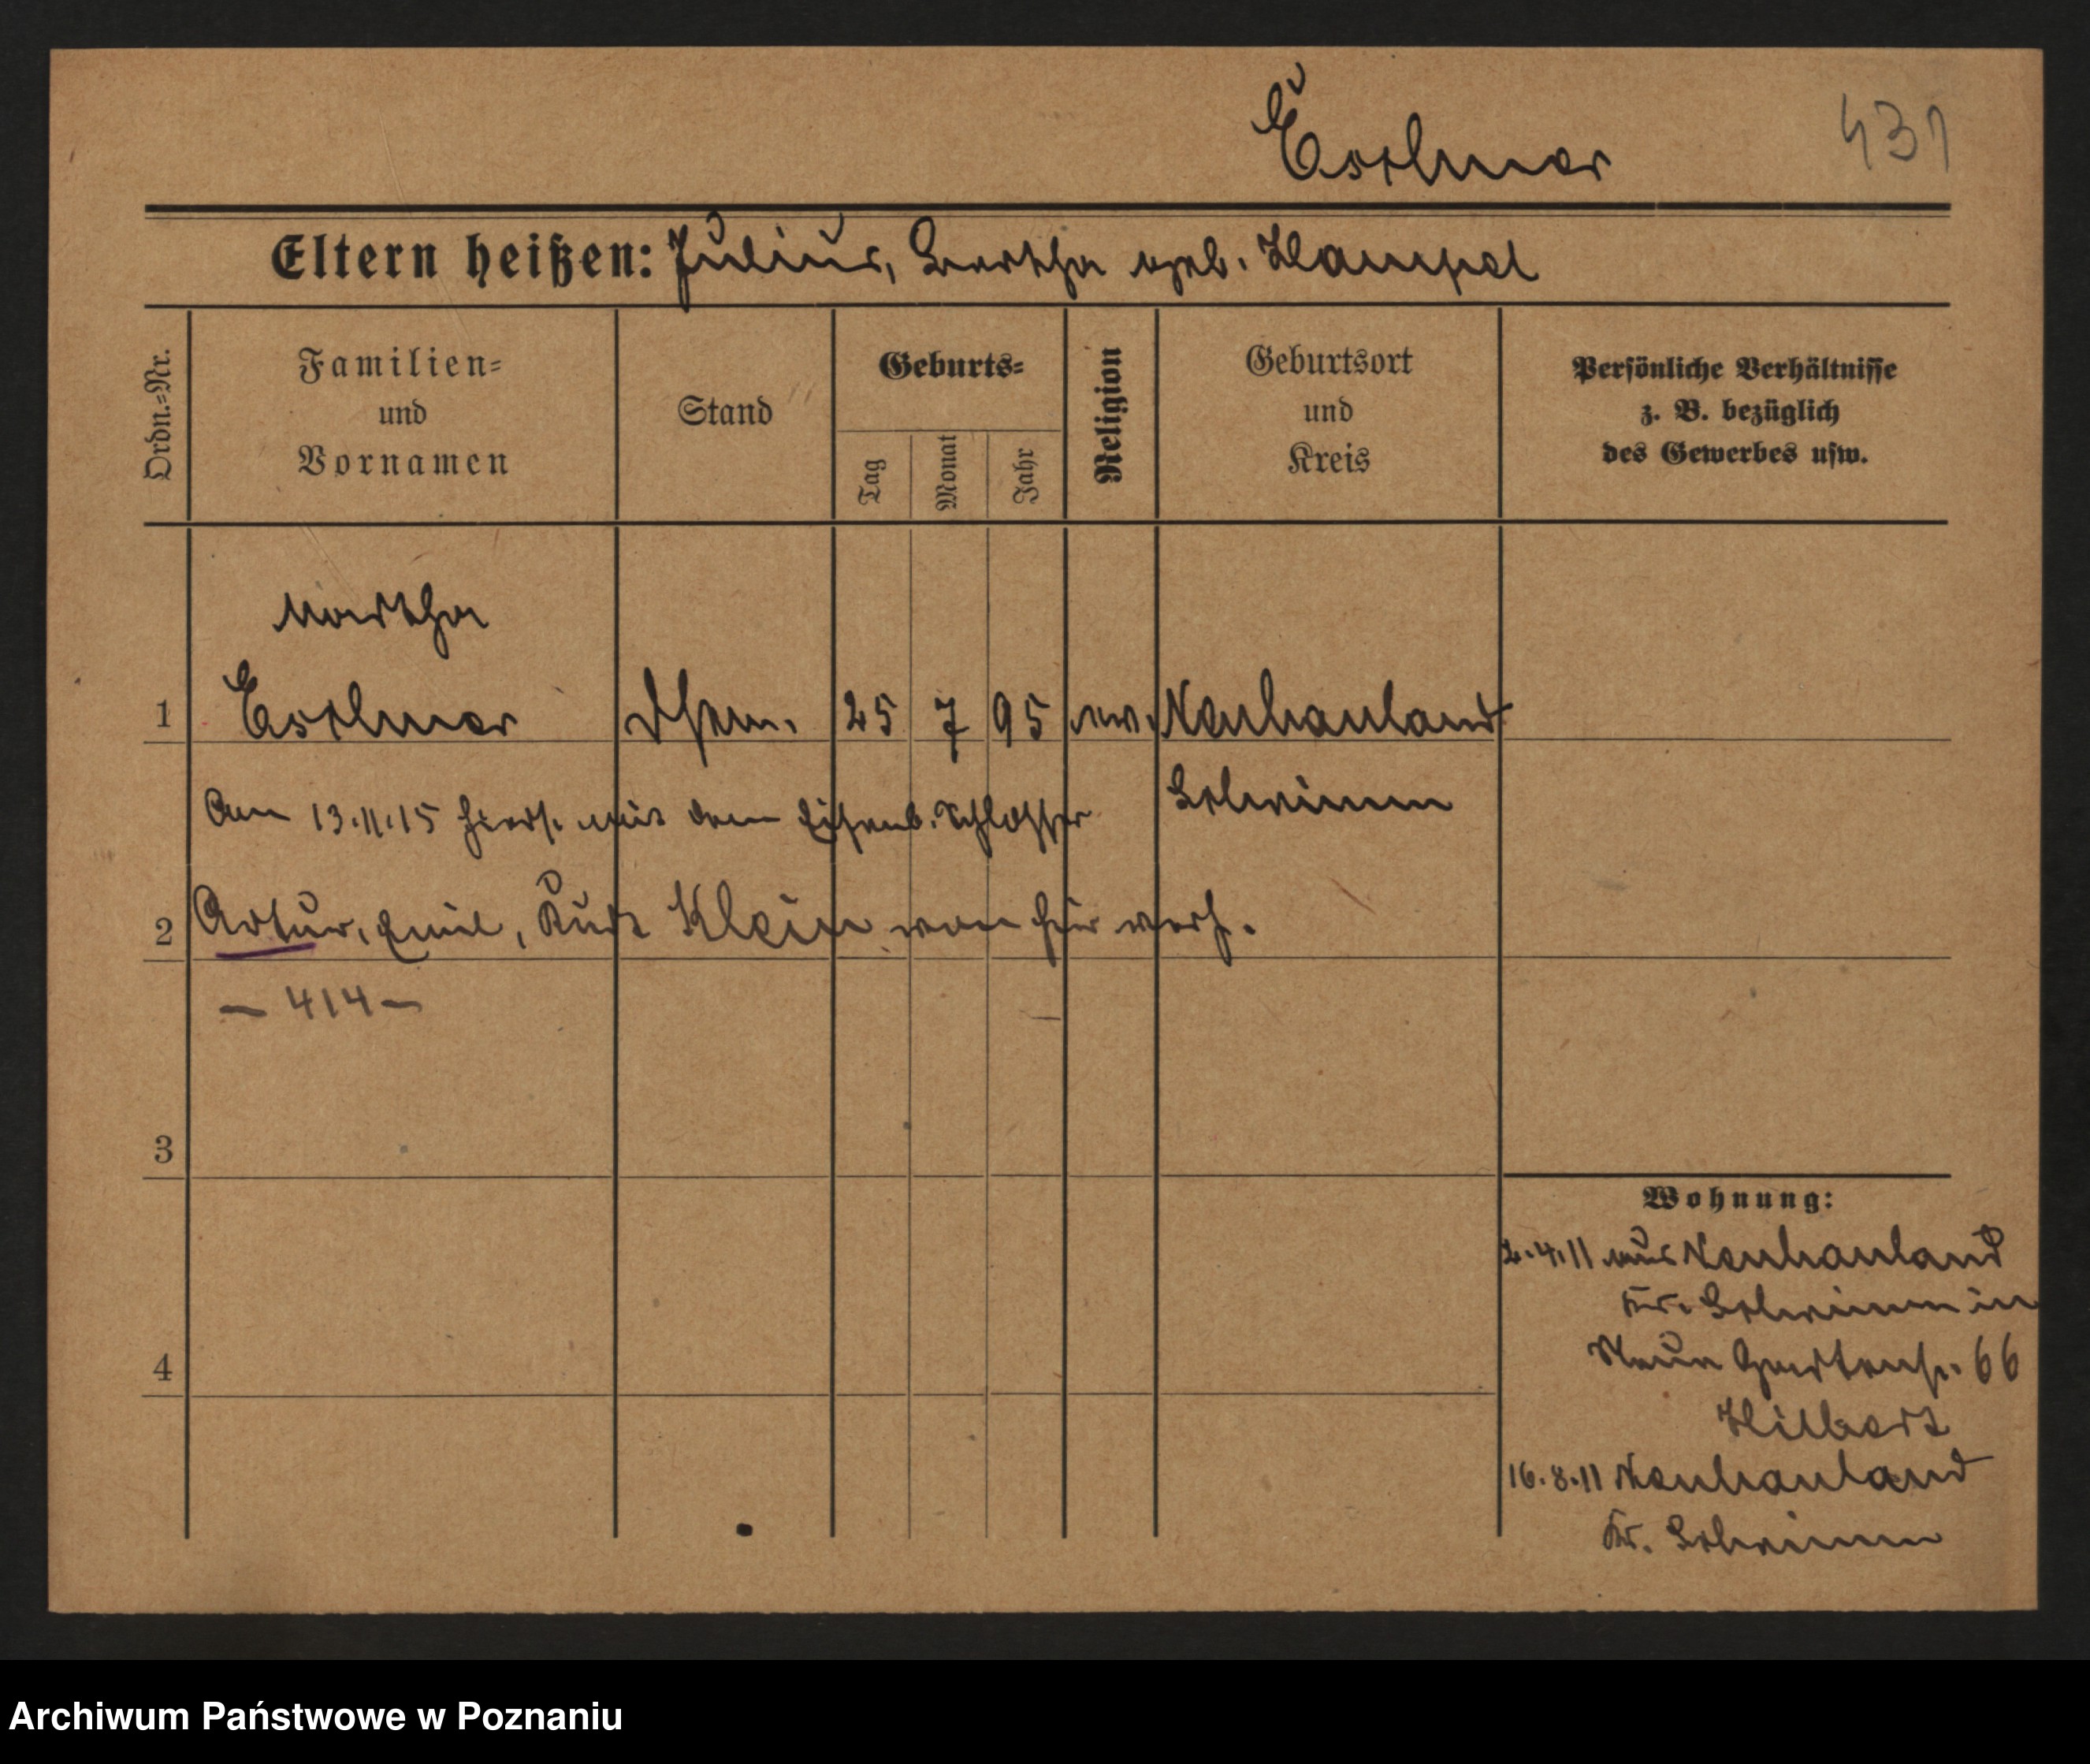 431
Eltern heißen: Julius, Bertha geb. Hampel
Ordn.=Nr.
Familien=
und
Vornamen
Stand
Geburts=
Tag
Monat
Jahr
Religion
Geburtsort
und
Kreis
Persönliche Verhältnisse
z. B. bezüglich
des Gewerbes usw.
Martha
1 25 7 95 ev. Neuhauland
Schwerin
Am 13.11.15 hiers. mit dem Eisenb. Schlosser
2 Artur, Emil, Kurt Klein von hier verh.
— 414 —
3
4
Wohnung:
2.4.11 aus Neuhauland
Kr. Schwerin in
Neue Gartenstr. 66
Hilbert
16.8.11 Neuhauland
Kr. Schwerin
Archiwum Państwowe w Poznaniu